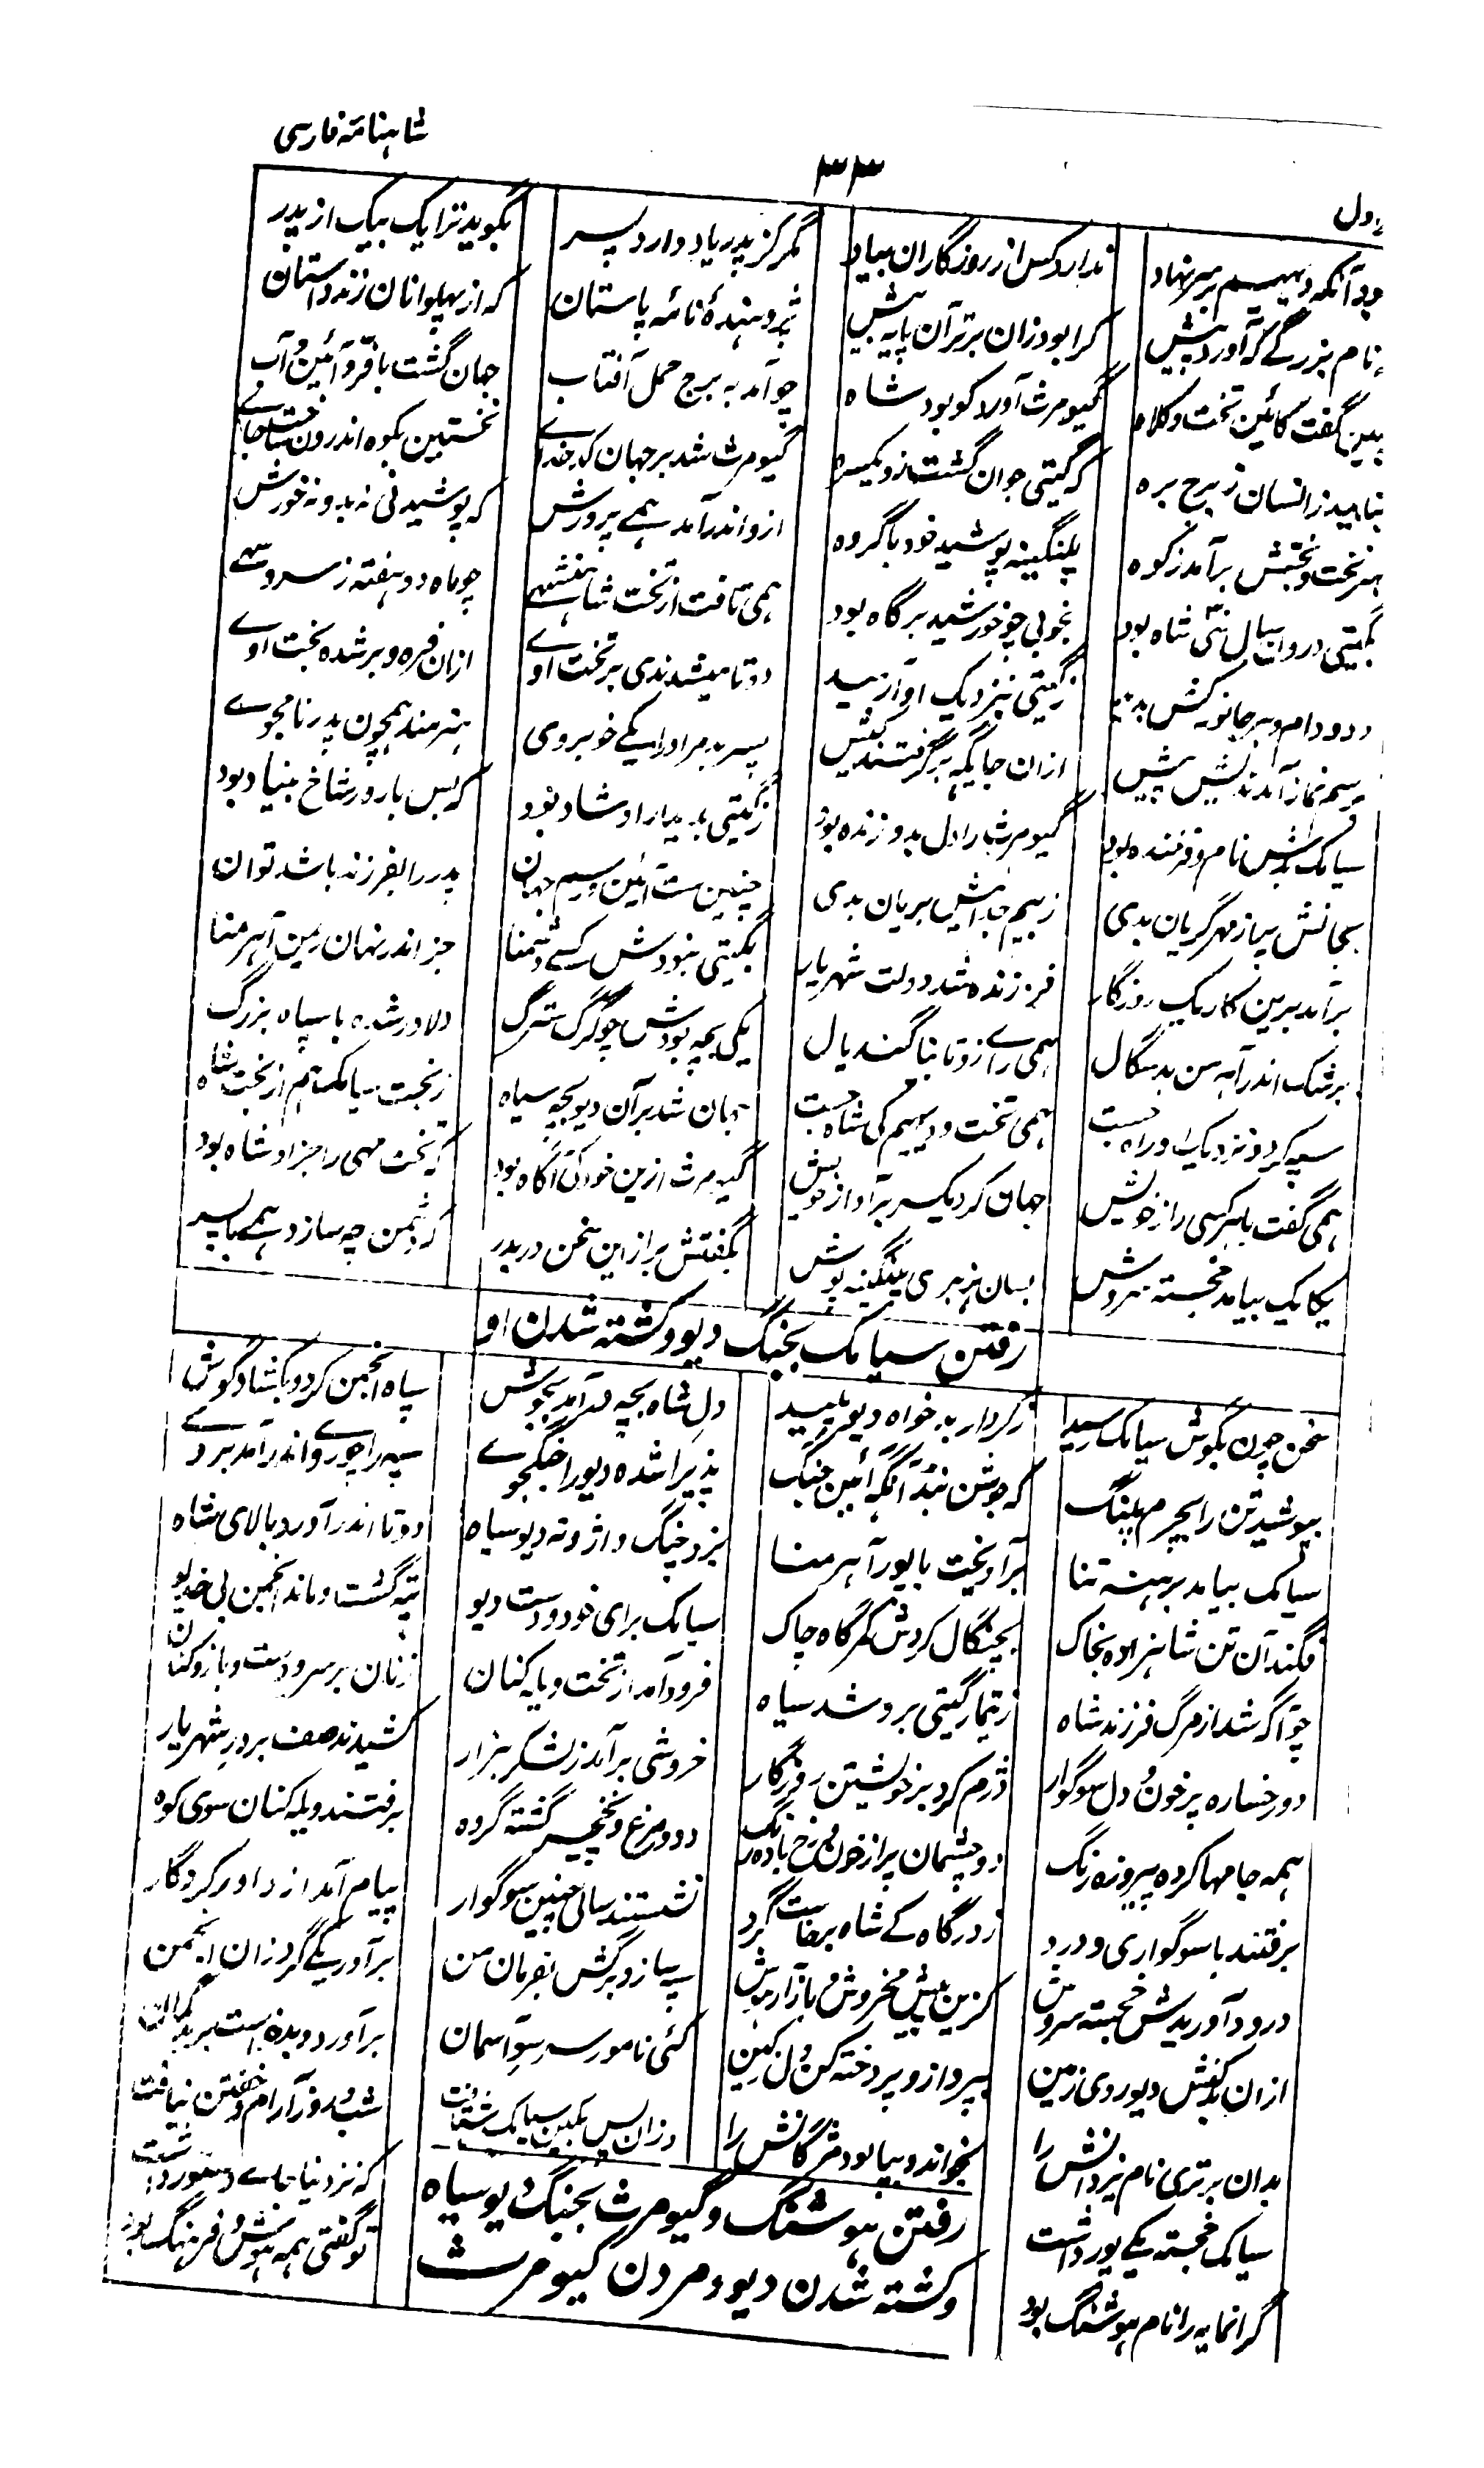 شاهنامهٔ فارسی
۳۳
دل
بود آنکه دیهیم بر سر نهاد ندارد کس از روزگاران بیاد مگر کز پدر یاد دارد پسر بگوید ترا یک بیک از پدر
نام بزرگی که آورد پیش کرا بود زان برتران پایه بیش پژوهندهٔ نامهٔ باستان که از پهلوانان زند داستان
چنین گفت کائین تخت و کلاه گیومرث آورد کو بود شاه چو آمد به برج حمل آفتاب جهان گشت با فر و آئین و آب
بتابید زانسان ز برج بره که گیتی جوان گشت ازو یکسره گیومرث شد بر جهان کدخدای نخستین بکوه اندرون ساخت جای
سر تخت و بختش برآمد ز کوه پلنگینه پوشید خود با گروه ازو اندر آمد همی پرورش که پوشیدنی نو بد و نو خورش
بگیتی درون سال سی شاه بود بخوبی چو خورشید بر گاه بود همی تافت از تخت شاهنشهی چو ماه دو هفته ز سرو سهی
دد و دام و هر جانور کش بدید ز گیتی بنزدیک او آرمید دوتا میشدندی بر تخت اوی ازان فره و برشده بخت اوی
برسم نماز آمدندیش پیش ازان جایگه برگرفتند کیش پسر بد مر او را یکی خوبروی هنرمند همچون پدر نامجوی
سیامک بدش نام و فرخنده بود گیومرث را دل بدو زنده بود ز گیتی بدیدار او شاد بود که بس بارور شاخ بنیاد بود
بجانش بر از مهر گریان بدی ز بیم جدائیش بریان بدی چنین ست آئین و رسم جهان پدر را بفرزند باشد توان
برآمد برین کار یک روزگار فروزنده شد دولت شهریار بگیتی نبودش کسی دشمنا جز اندر نهان ریمن آهرمنا
برشک اندر آهرمن بدسگال همی رای زد تا بیاگند یال یکی بچه بودش چو گرگ سترگ دلاور شده با سپاه بزرگ
سپه کرد و نزدیک او راه جست همی تخت و دیهیم کی شاه جست جهان شد بر آن دیو بچه سیاه ز بخت سیامک هم از بخت شاه
همی گفت با هر کسی راز خویش جهان کرد یکسر پر آواز خویش گیومرث ازین خود کی آگاه بود که تخت مهی را جز او شاه بود
یکایک بیامد خجسته سروش بسان هژبری پلنگینه پوش بگفتش براز این سخن در بدر که دشمن چه سازد همی با پسر
رفتن سیامک بجنگ دیو و کشته شدن او
سخن چون بگوش سیامک رسید ز کردار بد خواه دیو پلید دل شاه بچه برآمد بجوش سپاه انجمن کرد و بگشاد گوش
بپوشید تن را بچرم پلنگ که جوشن نبد آنگه آئین جنگ پذیرا شده دیو را جنگجوی سپه را چو روی اندر آمد بروی
سیامک بیامد برهنه تنا برآویخت با پور آهرمنا بزد چنگ واژونه دیو سیاه دوتا اندر آورد بالای شاه
فگند آن تن شاهزاده بخاک بچنگال کردش کمرگاه چاک سیامک برای خود و دست دیو تبه گشت و ماند انجمن بی خدیو
چو آگه شد از مرگ فرزند شاه ز تیمار گیتی برو شد سیاه فرود آمد از تخت ویله کنان زنان بر سر و دست و بازو کنان
دو رخساره پر خون و دل سوگوار دژم کرد بر خویشتن روزگار خروشی برآمد ز لشکر بزار کشیدند صف بر در شهریار
همه جامها کرده پیروزه رنگ دو چشمان پر از خون و رخ باده رنگ دد و مرغ و نخچیر گشته گروه برفتند ویله کنان سوی کوه
برفتند با سوگواری و درد ز درگاه کی شاه برخاست گرد نشستند سالی چنین سوگوار پیام آمد از داور کردگار
درود آوریدش خجسته سروش کزین بیش مخروش و بازآر هوش سپه ساز و برکش بفرمان من برآور یکی گرد زان انجمن
ازان بدکنش دیو روی زمین بپرداز و پردخته کن دل ز کین کئی نامور سر سوی آسمان برآورد و بد خواست بر بدگمان
بدان برتری نام یزدانش را بخواند و بپالود مژگانش را وزان پس بکین سیامک شتافت شب و روز آرام و خفتن نیافت
رفتن هوشنگ و گیومرث بجنگ دیو سیاه
و کشته شدن دیو و مردن گیومرث
سیامک خجسته یکی پور داشت که نزد نیا جای دستور داشت
گرانمایه را نام هوشنگ بود تو گفتی همه هوش و فرهنگ بود